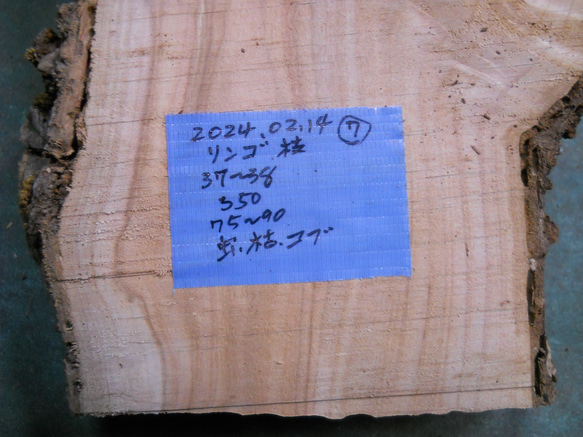 2024.02.14 ⑦
リンゴ 枝
37~38
350
75~90
虫.枝.コブ